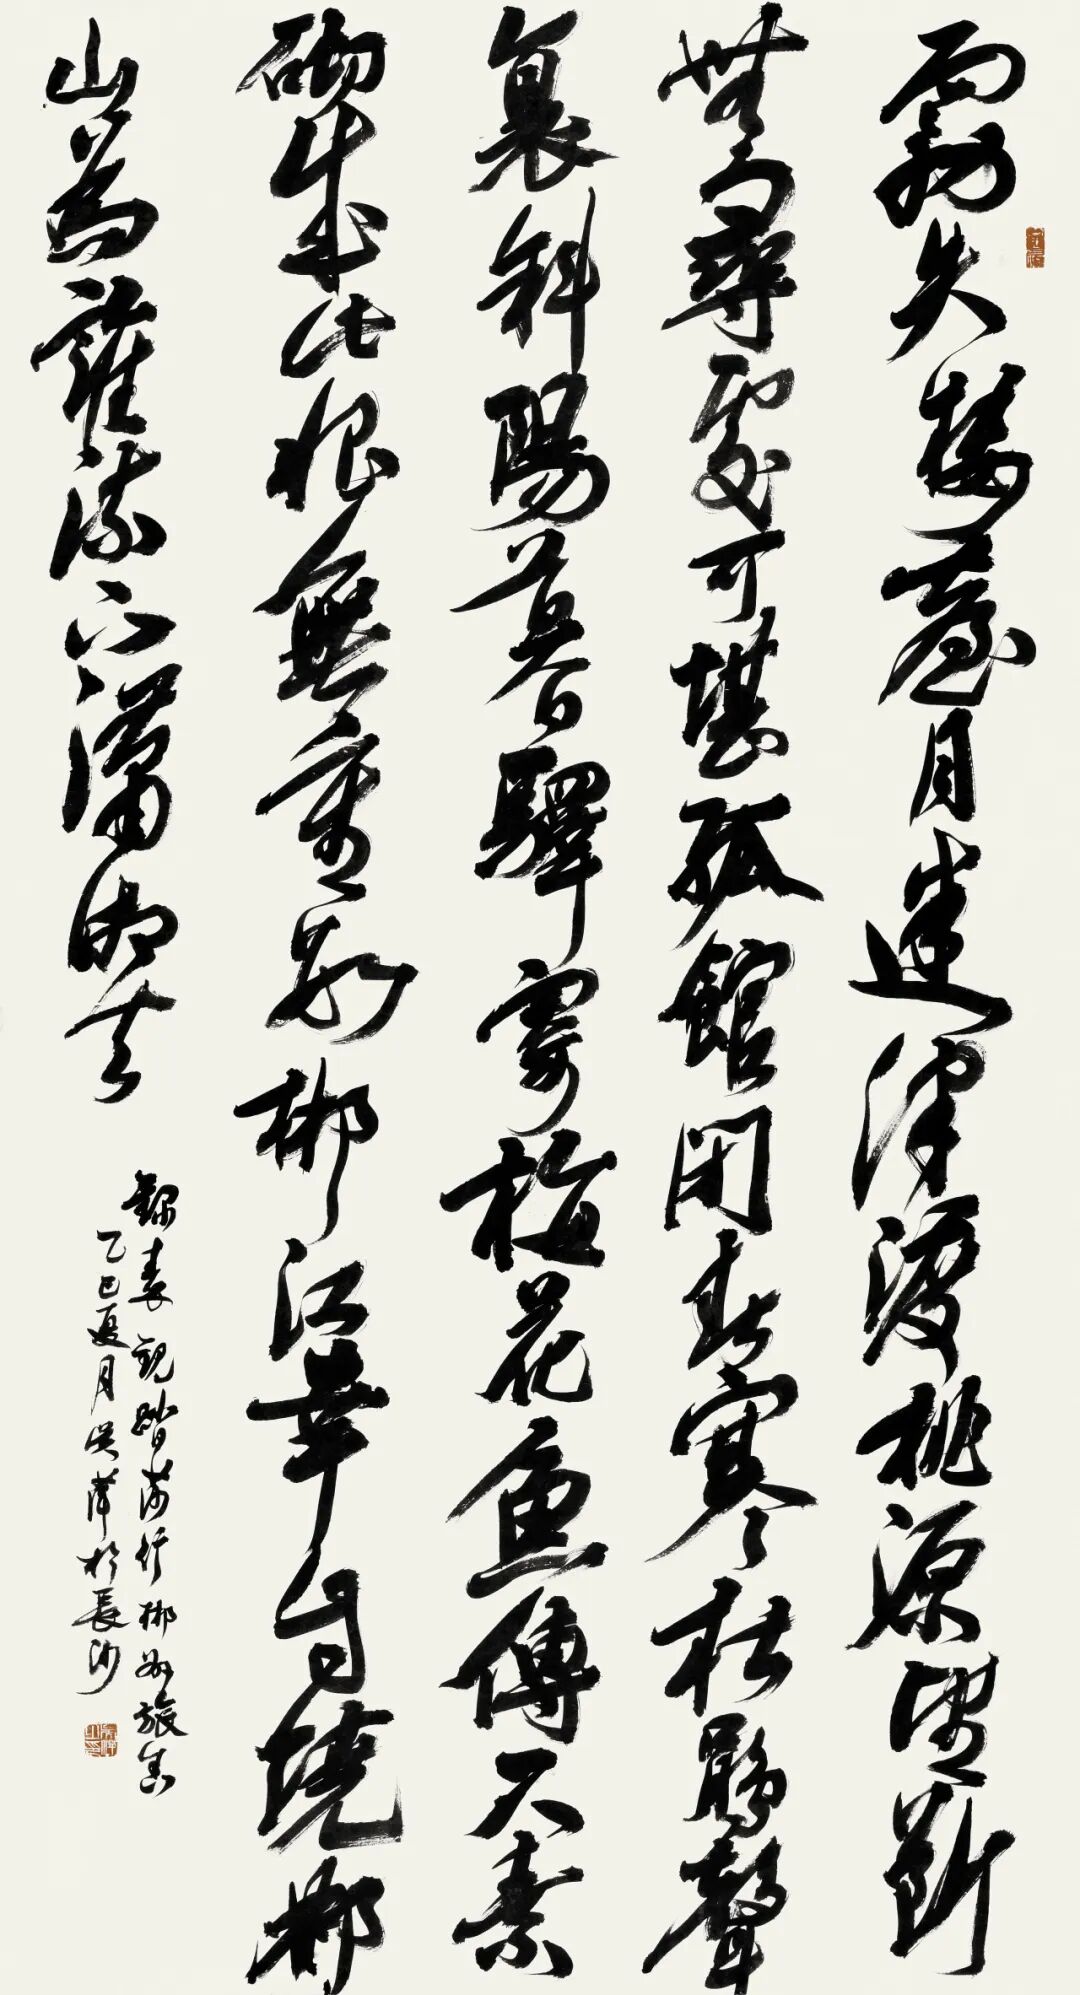 霧失樓臺月迷津渡桃源望斷
無尋處可堪孤館閉春寒杜鵑聲
裏斜陽暮驛寄梅花魚傳尺素
砌成此恨無重數郴江幸自繞郴
山為誰流下瀟湘去
錄秦觀踏莎行郴州旅舍
乙巳夏月吳於長沙